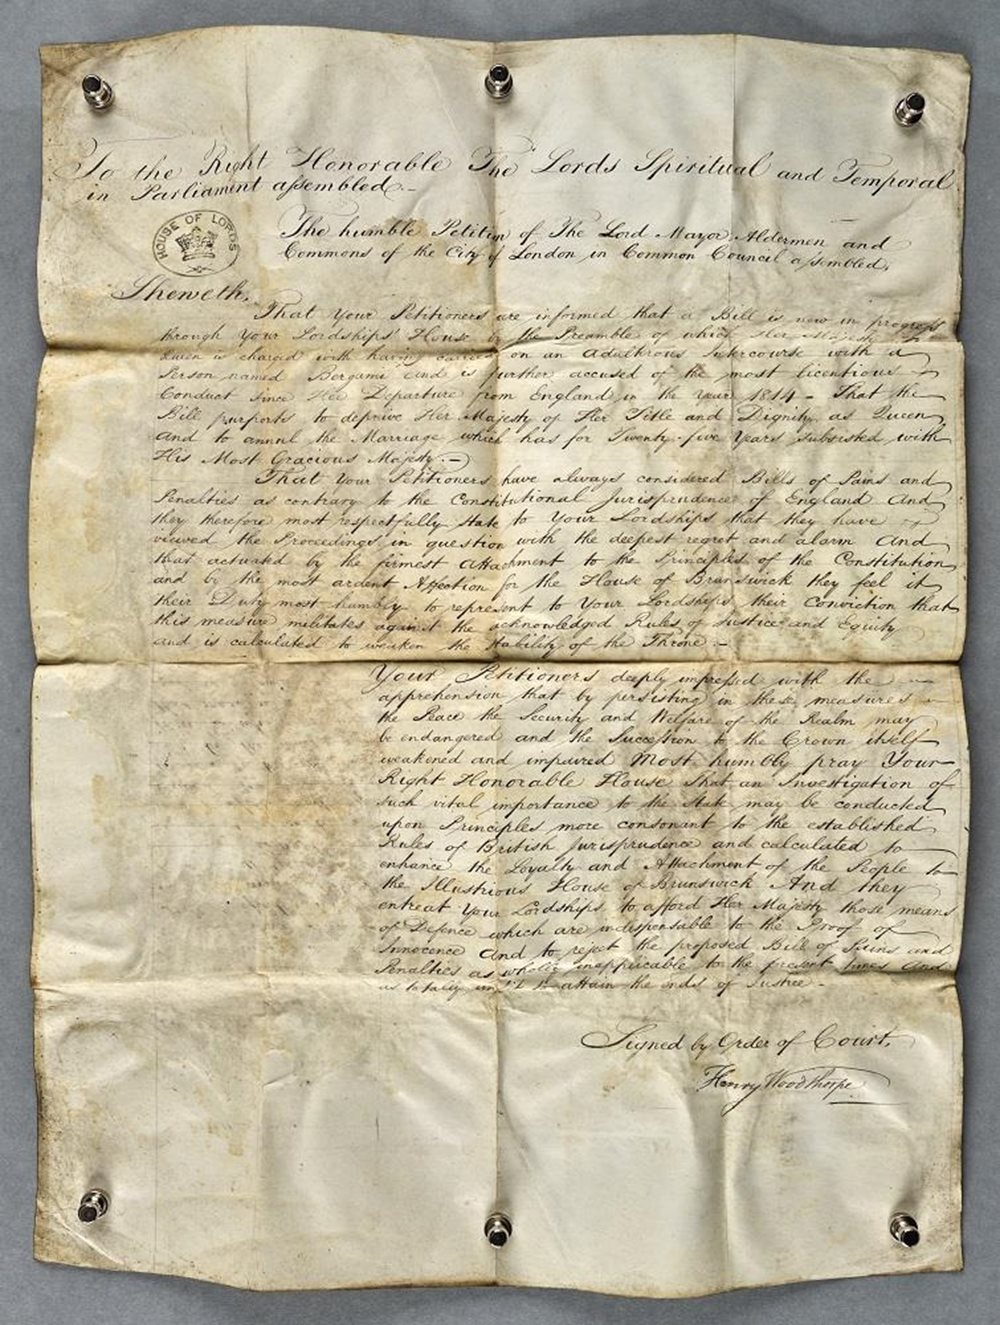 To the Right Honorable The Lords Spiritual and Temporal
in Parliament assembled.-
HOUSE OF LORDS
The humble Petition of The Lord Mayor, Aldermen and
Commons of the City of London, in Common Council assembled,
Sheweth,
That Your Petitioners are informed that a Bill is now in progress
through Your Lordships' House by the Preamble of which Her Majesty the
Queen is charged with having carried on an adulterous Intercourse with a
Person named Bergami and is further accused of the most licentious
Conduct since Her Departure from England in the Year 1814 - That the
Bill purports to deprive Her Majesty of Her Title and Dignity as Queen
and to annul the Marriage which has for Twenty-five Years subsisted with
His Most Gracious Majesty.-
That Your Petitioners have always considered Bills of Pains and
Penalties as contrary to the Constitutional Jurisprudence of England And
they therefore most respectfully state to Your Lordships that they have
viewed the Proceedings in question with the deepest regret and alarm And
that actuated by the firmest Attachment to the Principles of the Constitution
and by the most ardent Affection for the House of Brunswick they feel it
their Duty most humbly to represent to Your Lordships their Conviction that
this measure militates against the acknowledged Rules of Justice and Equity
and is calculated to weaken the stability of the Throne.-
Your Petitioners deeply impressed with the
apprehension that by persisting in these measures
the Peace the Security and Welfare of the Realm may
be endangered and the Succession to the Crown itself
weakened and impaired Most humbly pray Your
Right Honorable House That an Investigation of
such vital importance to the State may be conducted
upon Principles more consonant to the established
Rules of British Jurisprudence and calculated to
enhance the Loyalty and Attachment of the People to
the Illustrious House of Brunswick And they
entreat Your Lordships to afford Her Majesty those means
of Defence which are indispensable to the Proof of
Innocence and to reject the proposed Bill of Pains and
Penalties as wholly inapplicable to the present times and
as totally unfit to attain the ends of Justice.-
Signed by Order of Court,
Henry Woodthorpe